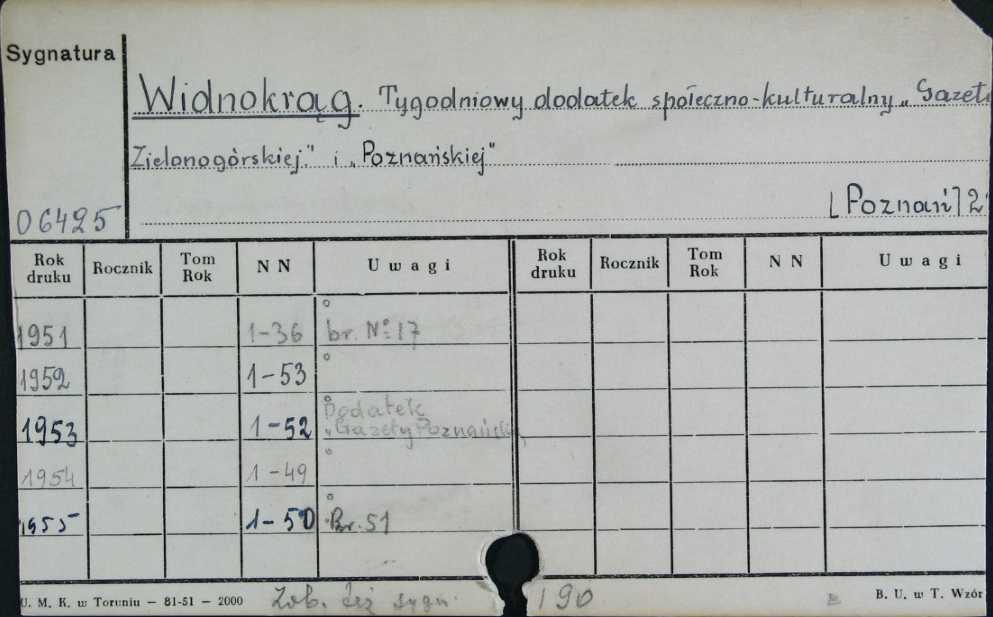 Sygnatura
Widnokrąg. Tygodniowy dodatek społeczno-kulturalny „Gazety
Zielonogórskiej" i „Poznańskiej"
06425
[Poznań] 2°
Rok druku Rocznik Tom Rok NN Uwagi Rok druku Rocznik Tom Rok NN Uwagi
1951 1-36 br. No 17
1952 1-53
1953 1-52 Dodatek „Gazety Poznańskiej
1954 1-49
1955 1-50 Br. 51
Zob. też sygn. 190
U. M. K. w Toruniu — 81-51 — 2000
B. U. w T. Wzór